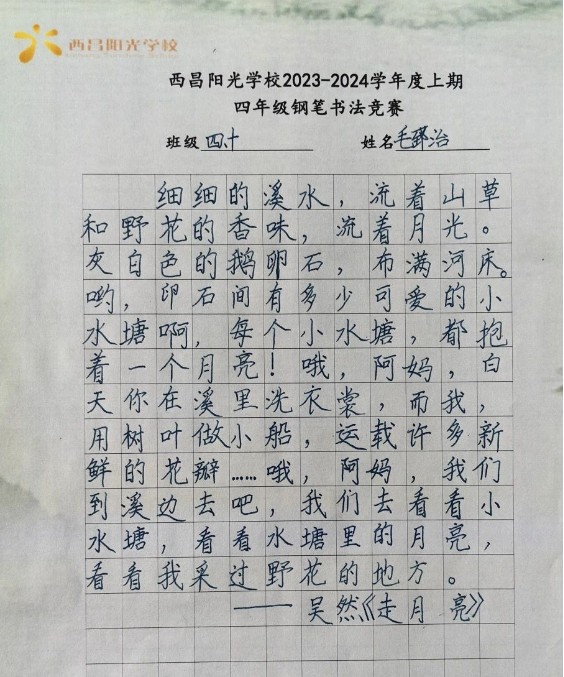 西昌阳光学校
西昌阳光学校2023-2024学年度上期
四年级钢笔书法竞赛
班级 四、十 姓名 毛郅治
细细的溪水，流着山草
和野花的香味，流着月光。
灰白色的鹅卵石，布满河床。
哟，卵石间有多少可爱的小
水塘啊，每个小水塘，都抱
着一个月亮！哦，阿妈，白
天你在溪里洗衣裳，而我，
用树叶做小船，运载许多新
鲜的花瓣……哦，阿妈，我们
到溪边去吧，我们去看看小
水塘，看看水塘里的月亮，
看看我采过野花的地方。
——吴然《走月亮》